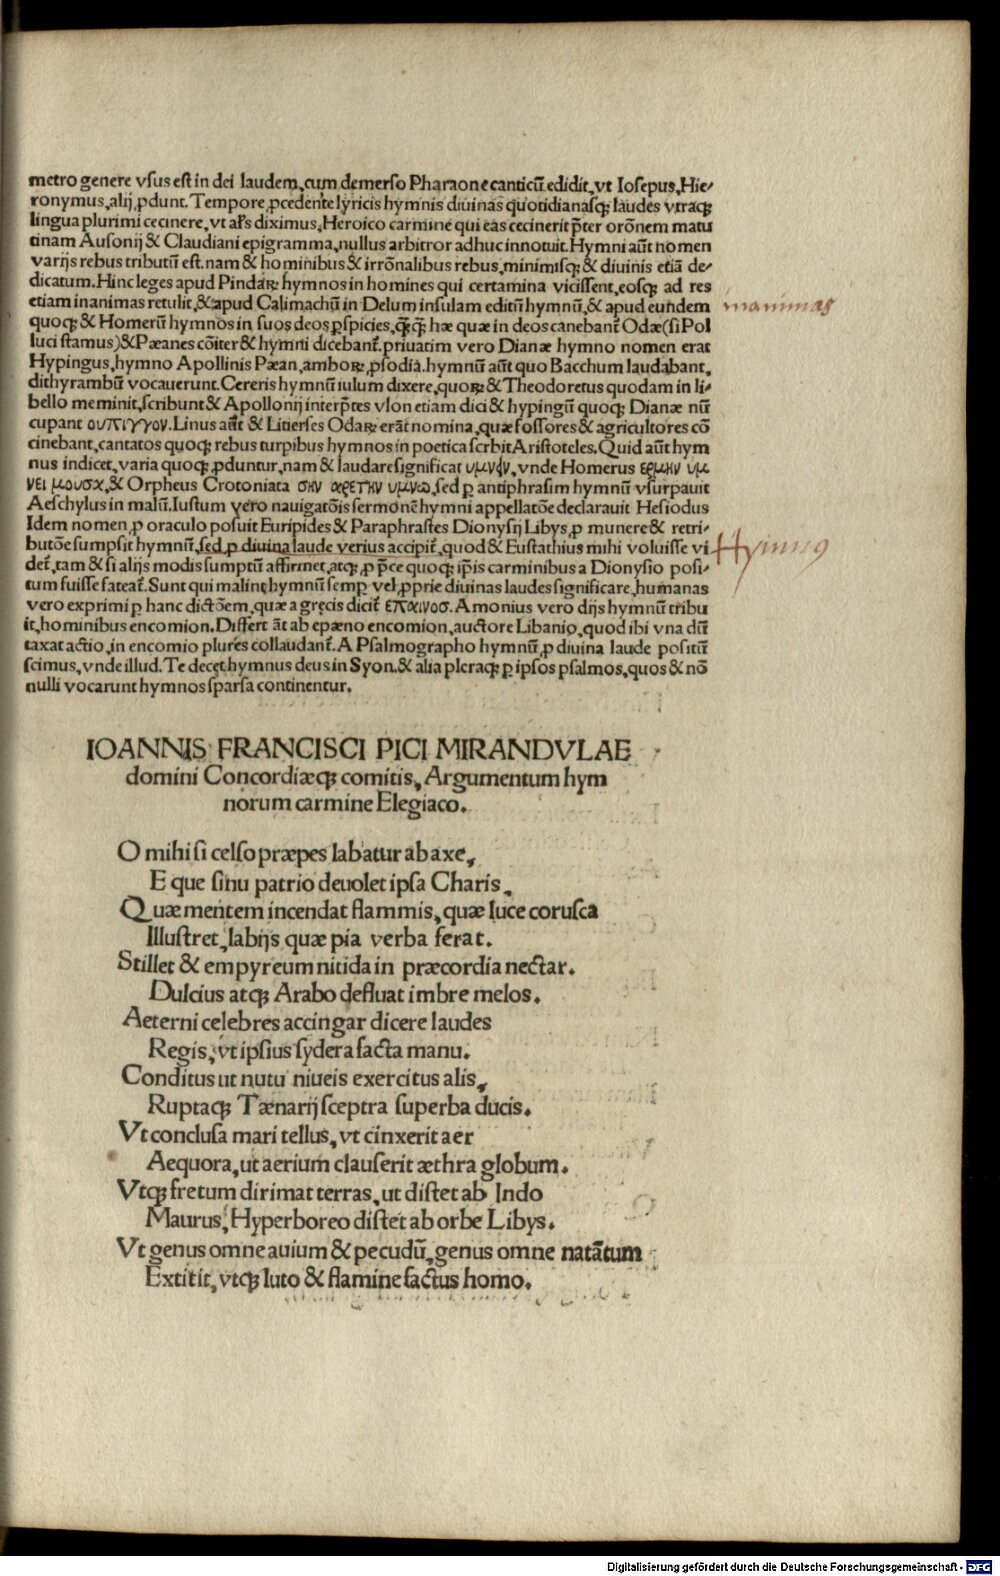 metro genere vsus est in dei laudem, cum demerso Pharaone canticũ edidit, vt Iosepus, Hie/
ronymus, alij ꝓdunt. Tempore ꝓcedente lyricis hymnis diuinas quotidianasqꝫ laudes vtraqꝫ
lingua plurimi cecinere, vt al's diximus, Heroico carmine qui eas cecinerit p̃ter orõnem matu
tinam Ausonij & Claudiani epigramma, nullus arbitror adhuc innotuit. Hymni aũt nomen
varijs rebus tributũ est. nam & hominibus & irrõnalibus rebus, minimisqꝫ & diuinis etiã de/
dicatum. Hinc leges apud Pindaꝝ hymnos in homines qui certamina vicissent, eosqꝫ ad res
etiam inanimas retulit, & apud Calimachũ in Delum insulam editũ hymnũ, & apud eundem
quoqꝫ & Homerũ hymnos in suos deos ꝑspicies, q̃q̃ hæ quæ in deos canebant̃ Odæ (si Pol
luci stamus) & Pæanes cõiter & hymni dicebant̃. priuatim vero Dianæ hymno nomen erat
Hypingus, hymno Apollinis Pæan, amboꝝ ꝓsodia. hymnũ aũt quo Bacchum laudabant,
dithyrambũ vocauerunt. Cereris hymnũ iulum dixere, quoꝝ & Theodoretus quodam in li/
bello meminit, scribunt & Apollonij interp̃tes vlon etiam dici & hypingũ quoqꝫ Dianæ nũ
cupant ουπιγγον. Linus aũt & Litierses Odaꝝ erãt nomina, quæ fossores & agricultores cõ
cinebant, cantatos quoqꝫ rebus turpibus hymnos in poetica scrbit Aristoteles. Quid aũt hym
nus indicet, varia quoqꝫ ꝓduntur, nam & laudare significat υμνει̃ν, vnde Homerus ερμην υμ
νει μουσα, & Orpheus Crotoniata σην αρετην υμνω, sed ꝑ antiphrasim hymnũ vsurpauit
Aeschylus in malũ. Iustum vero nauigatõis sermonẽ hymni appellatõe declarauit Hesiodus
Idem nomen ꝓ oraculo posuit Euripides & Paraphrastes Dionysij Libys ꝓ munere & retri/
butõe sumpsit hymnũ, sed ꝓ diuina laude verius accipit̃, quod & Eustathius mihi voluisse vi
det̃, tam & si alijs modis sumptũ affirmet, atqꝫ ꝓ p̃ce quoqꝫ ip̃is carminibus a Dionysio posi/
tum fuisse fateat̃. Sunt qui malint hymnũ semꝑ vel ꝓprie diuinas laudes significare, humanas
vero exprimi ꝑ hanc dictõem, quæ a gręcis dicit̃ επαινοσ. Amonius vero dijs hymnũ tribu
it, hominibus encomion. Differt ãt ab epæno encomion, auctore Libanio, quod ibi vna dũ
taxat actio, in encomio plures collaudant̃. A Psalmographo hymnũ ꝓ diuina laude positũ
scimus, vnde illud. Te decet hymnus deus in Syon. & alia pleraqꝫ ꝑ ipsos psalmos, quos & nõ
nulli vocarunt hymnos sparsa continentur.
mammas
Hymnus
IOANNIS FRANCISCI PICI MIRANDVLAE
domini Concordiæqꝫ comitis, Argumentum hym
norum carmine Elegiaco.
O mihi si celso præpes labatur ab axe,
E que sinu patrio deuolet ipsa Charis,
Quæ mentem incendat flammis, quæ luce corusca
Illustret, labijs quæ pia verba ferat.
Stillet & empyreum nitida in præcordia nectar.
Dulcius atqꝫ Arabo defluat imbre melos.
Aeterni celebres accingar dicere laudes
Regis, vt ipsius sydera facta manu.
Conditus ut nutu niueis exercitus alis,
Ruptaqꝫ Tænarij sceptra superba ducis.
Vt conclusa mari tellus, vt cinxerit aer
Aequora, ut aerium clauserit æthra globum.
Vtqꝫ fretum dirimat terras, ut distet ab Indo
Maurus, Hyperboreo distet ab orbe Libys.
Vt genus omne auium & pecudũ, genus omne natãtum
Extitit, vtqꝫ luto & flamine factus homo.
Digitalisierung gefördert durch die Deutsche Forschungsgemeinschaft - DFG